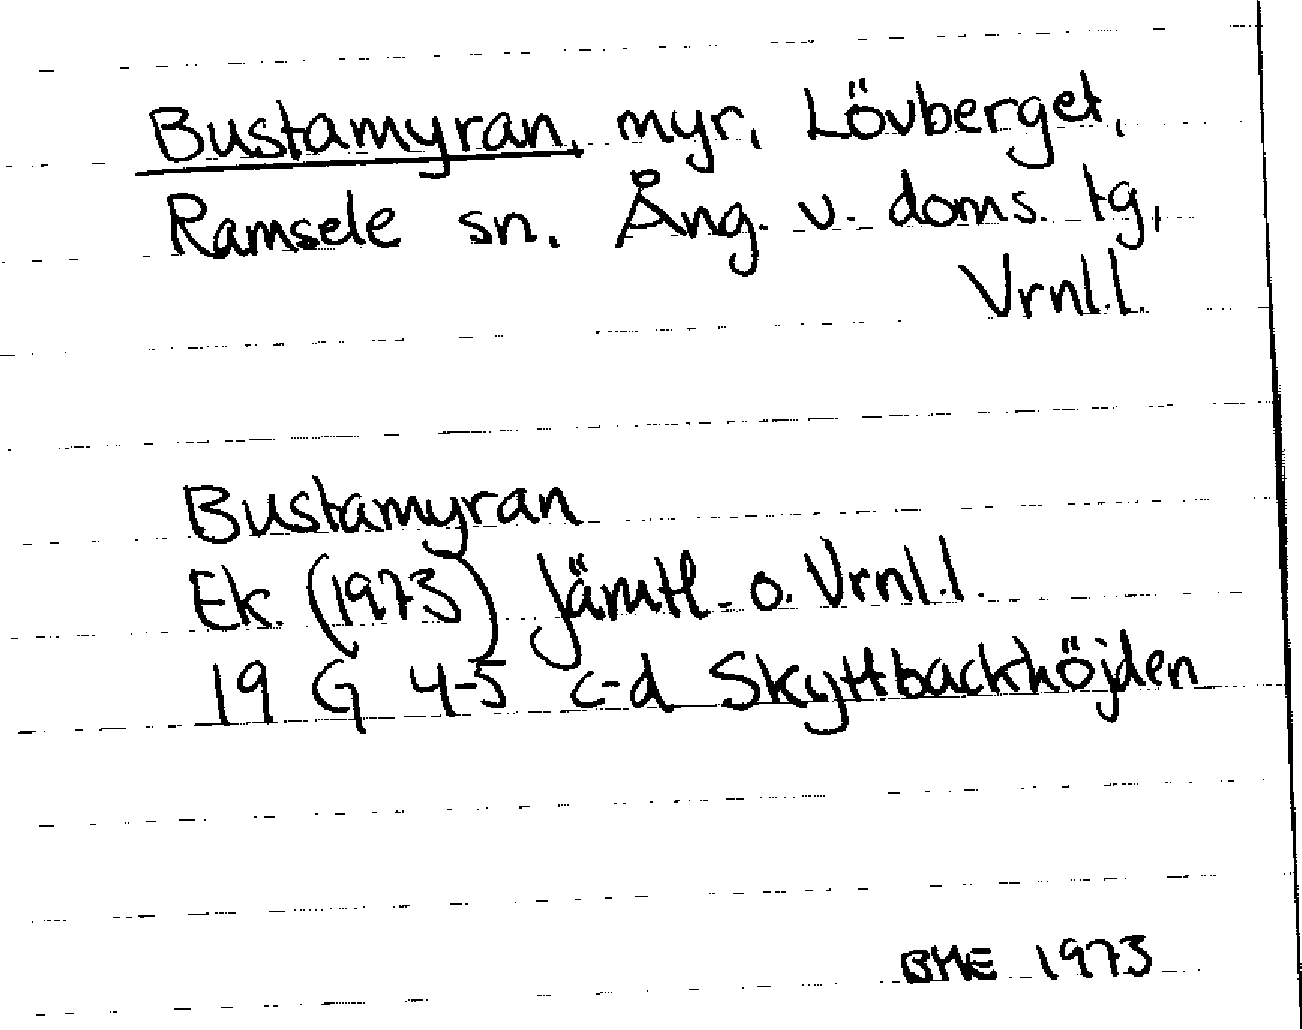 Bustamyran, myr, Lövberget,
Ramsele sn. Ång. v. doms. tg,
Vrnl.l.
Bustamyran
Ek. (1973) Jämtl. o. Vrnl.l.
19 G 4-5 c-d Skyttbackhöjden
BME 1973